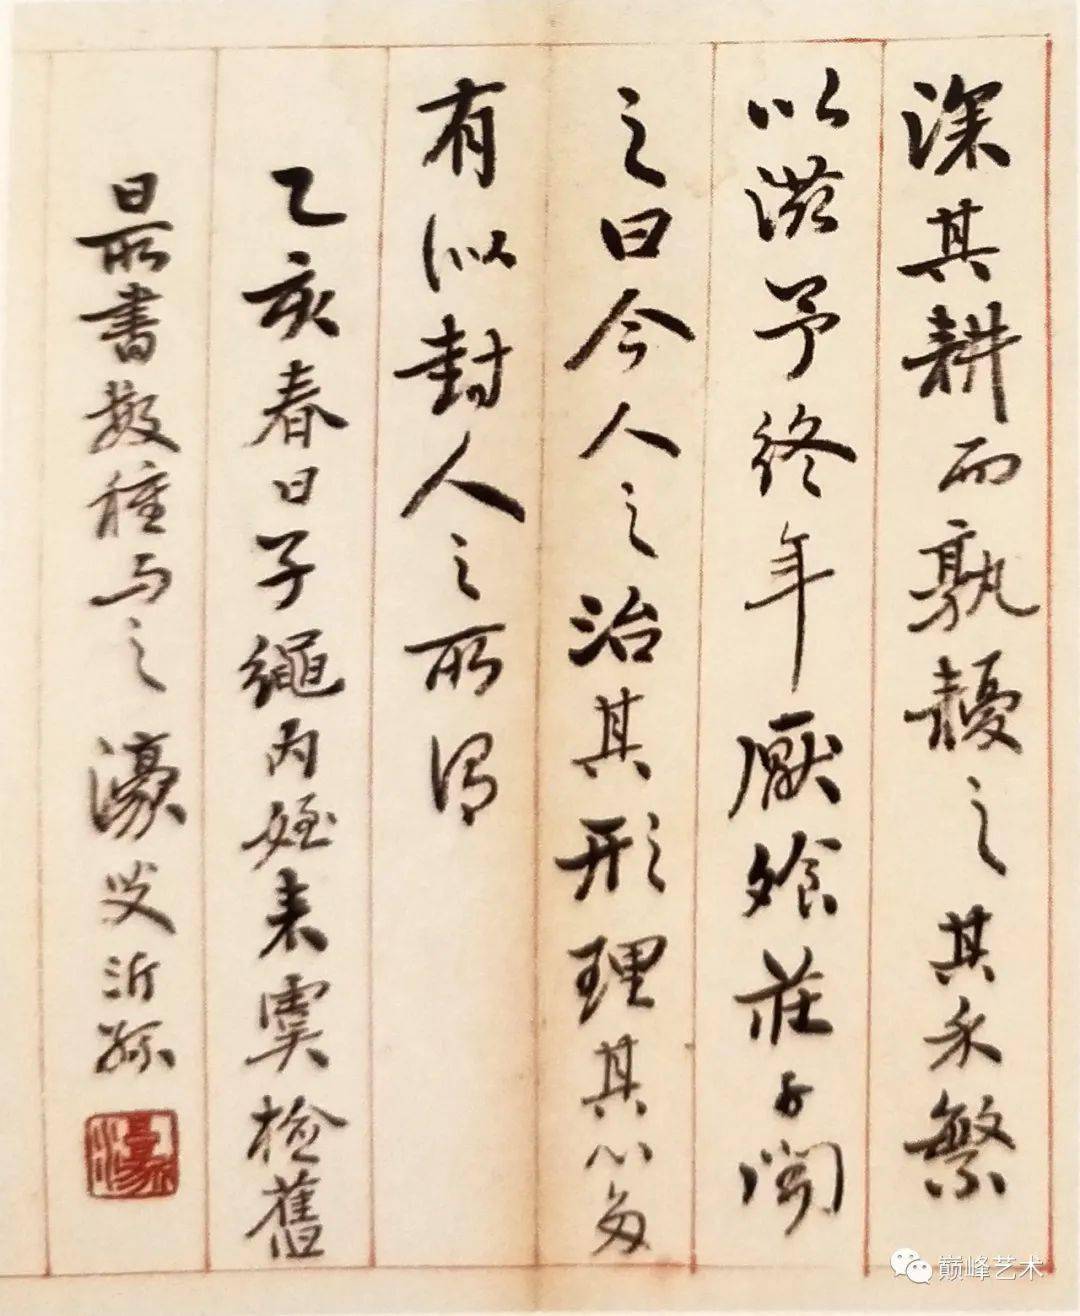 深其耕而孰耰之其禾繁
以滋予终年厭飧莊子聞
之曰今人之治其形理其心多
有似封人之所謂
乙亥春日子繩内姪来虞檢舊
日所書數種与之濠叟沂孫
濠
巅峰艺术